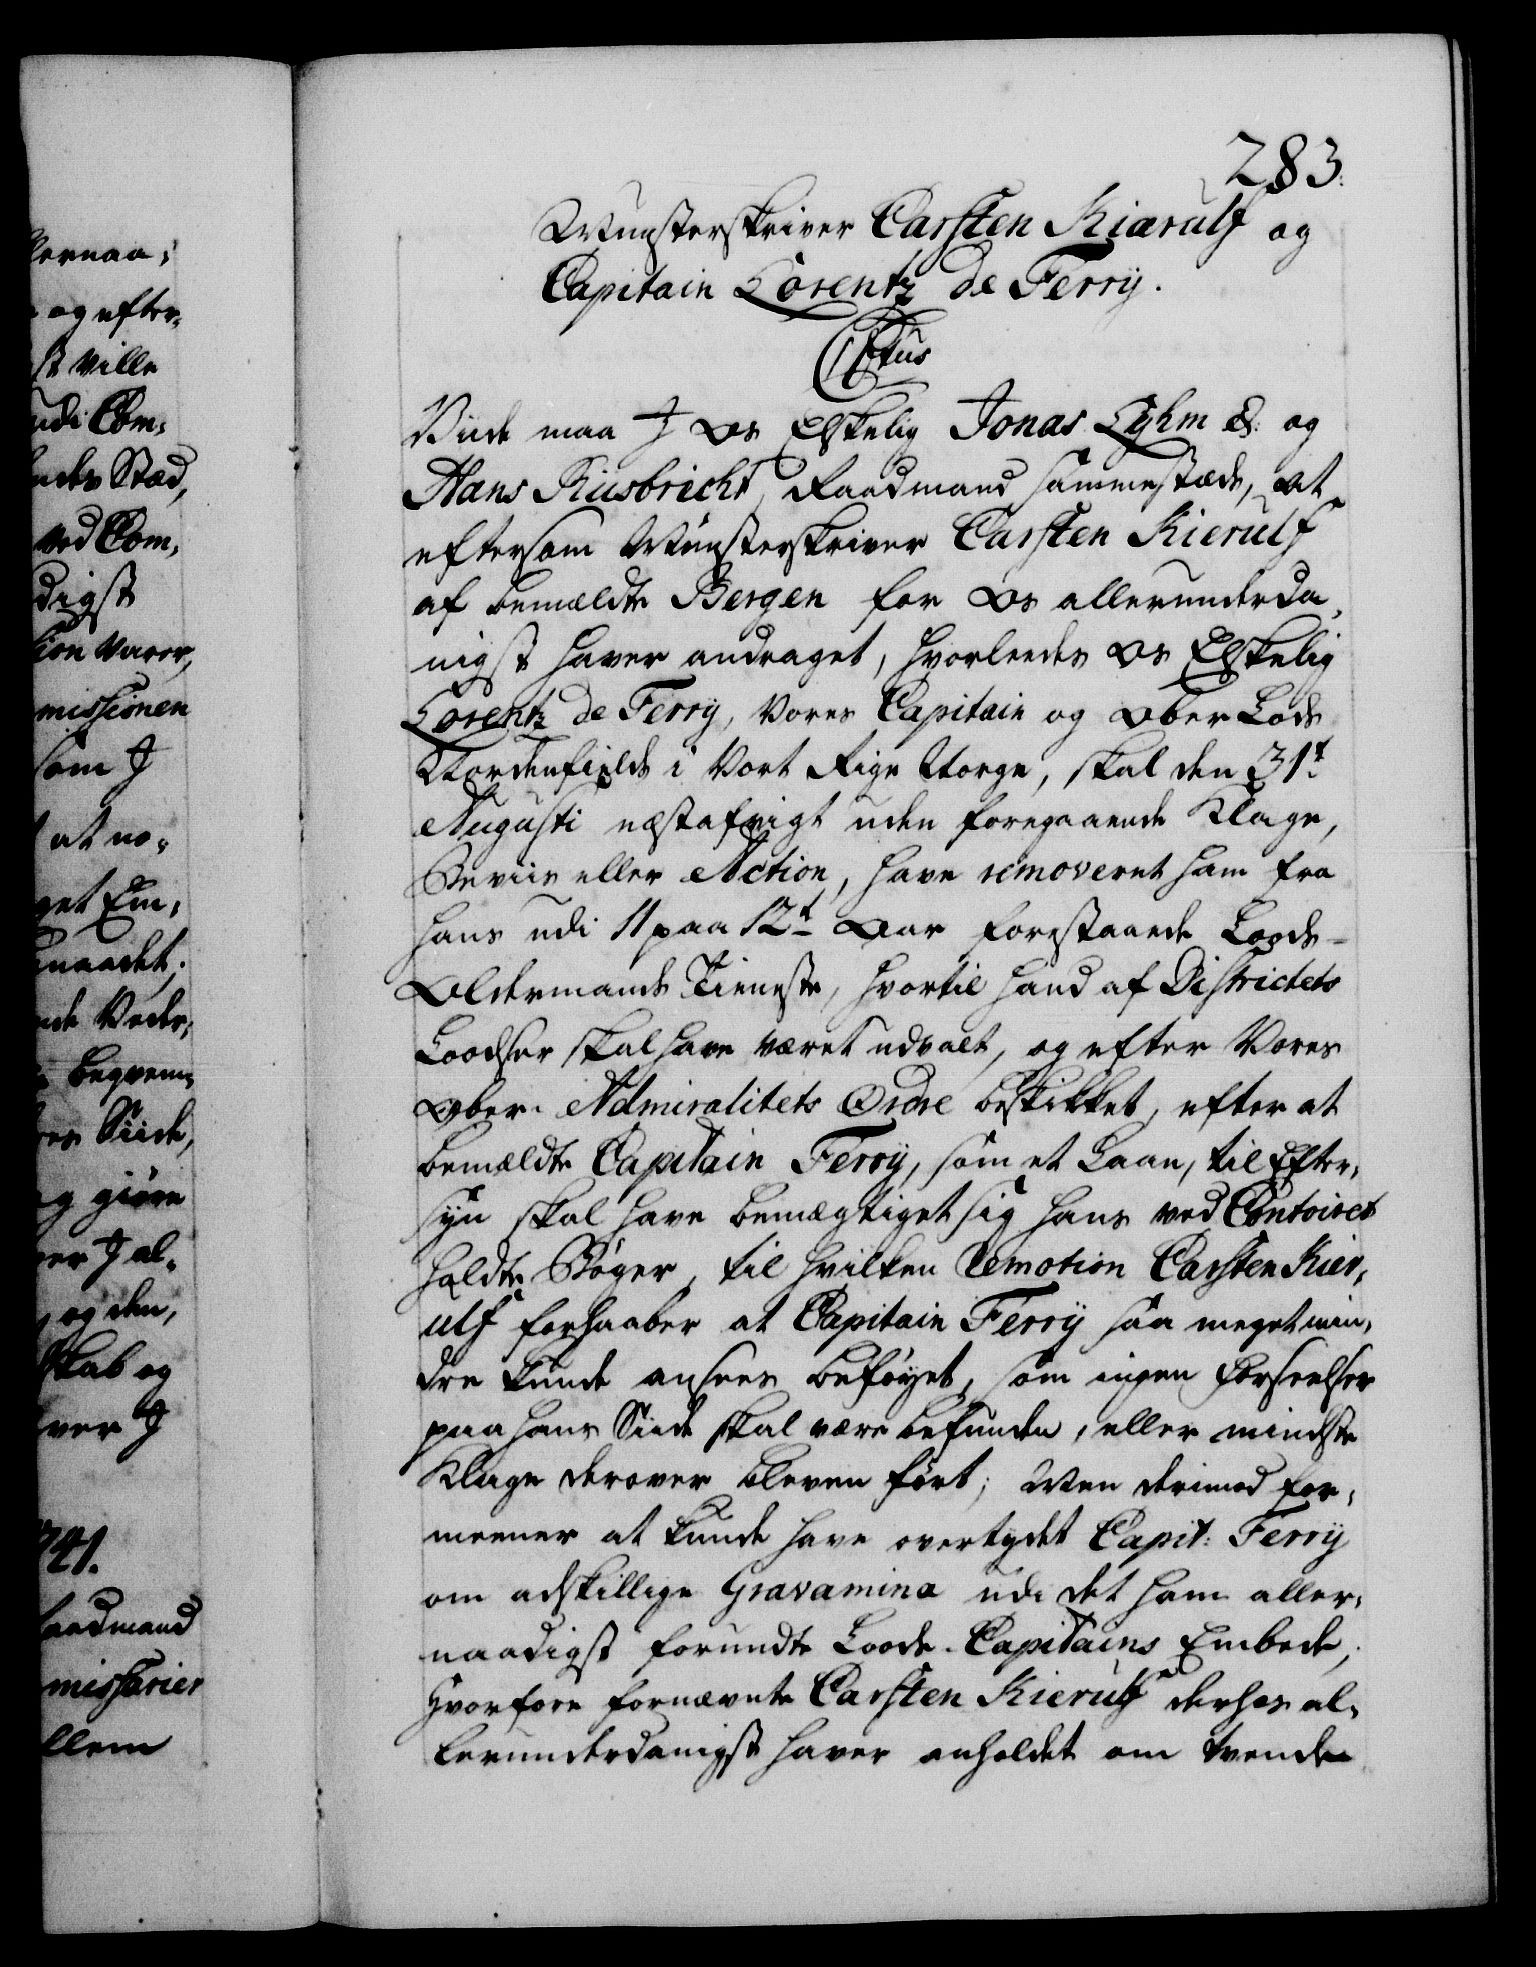 283.
Munsterskriver Carsten Kiærulf og
Capitain Lorentz de Ferry.
CVtus
Viide maa I Os Elskelig Jonas Lyhm &: og
Hans Kusbricht, Raadmand sammestæds, at
eftersom Munsterskriver Carsten Kierulf
af bemældte Bergen for Os allerunderda,
nigst haver andraget, hvorleedes Os Elskelig
Lorentz de Ferry, Vores Capitain og Ober Lods
Nordenfields i Vort Rige Norge, skal den 31t
Augusti næstafvigt uden foregaaende Klage,
Beviis eller Action, have removeret ham fra
hans udi 11 paa 12t Aar forestaaende Loods-
Oldermands Tieneste, hvortil hand af Districtets
Loodser skal have været udvalt, og efter Vores
Ober-Admiralitets Ordre beskikket, efter at
bemældte Capitain Ferry, som et Laan, til Efter,
syn skal have bemægtiget sig hans ved Contoiret
holdte Bøger, til hvilken Remotion Carsten Kier,
ulf forhaaber at Capitain Ferry saa meget min,
dre kunde ansees beføyet, som ingen Forseelser
paa hans Siide skal være befunden, eller mindste
Klage derover bleven ført; Men derimod for,
meener at kunde have overtydet Capit: Ferry
om adskillige Gravamina udi det ham aller,
naadigst forundte Loods-Capitains Embede,
Hvorfore fornævnte Carsten Kierulf derhos al,
lerunderdanigst haver anholdet om tvende
lernaa,
og efter,
st ville
udi Com,
Stæd,
ved Com,
digst
tion varer,
missionen
som I
at no,
get Em,
naadet.
Veder,
begvem,
Siide,
og giøre
er I al,
og den,
skab og
ver I
741.
Raadmand
missarier
llem